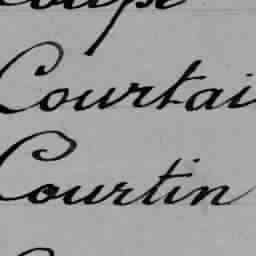 Courtai
Courtin